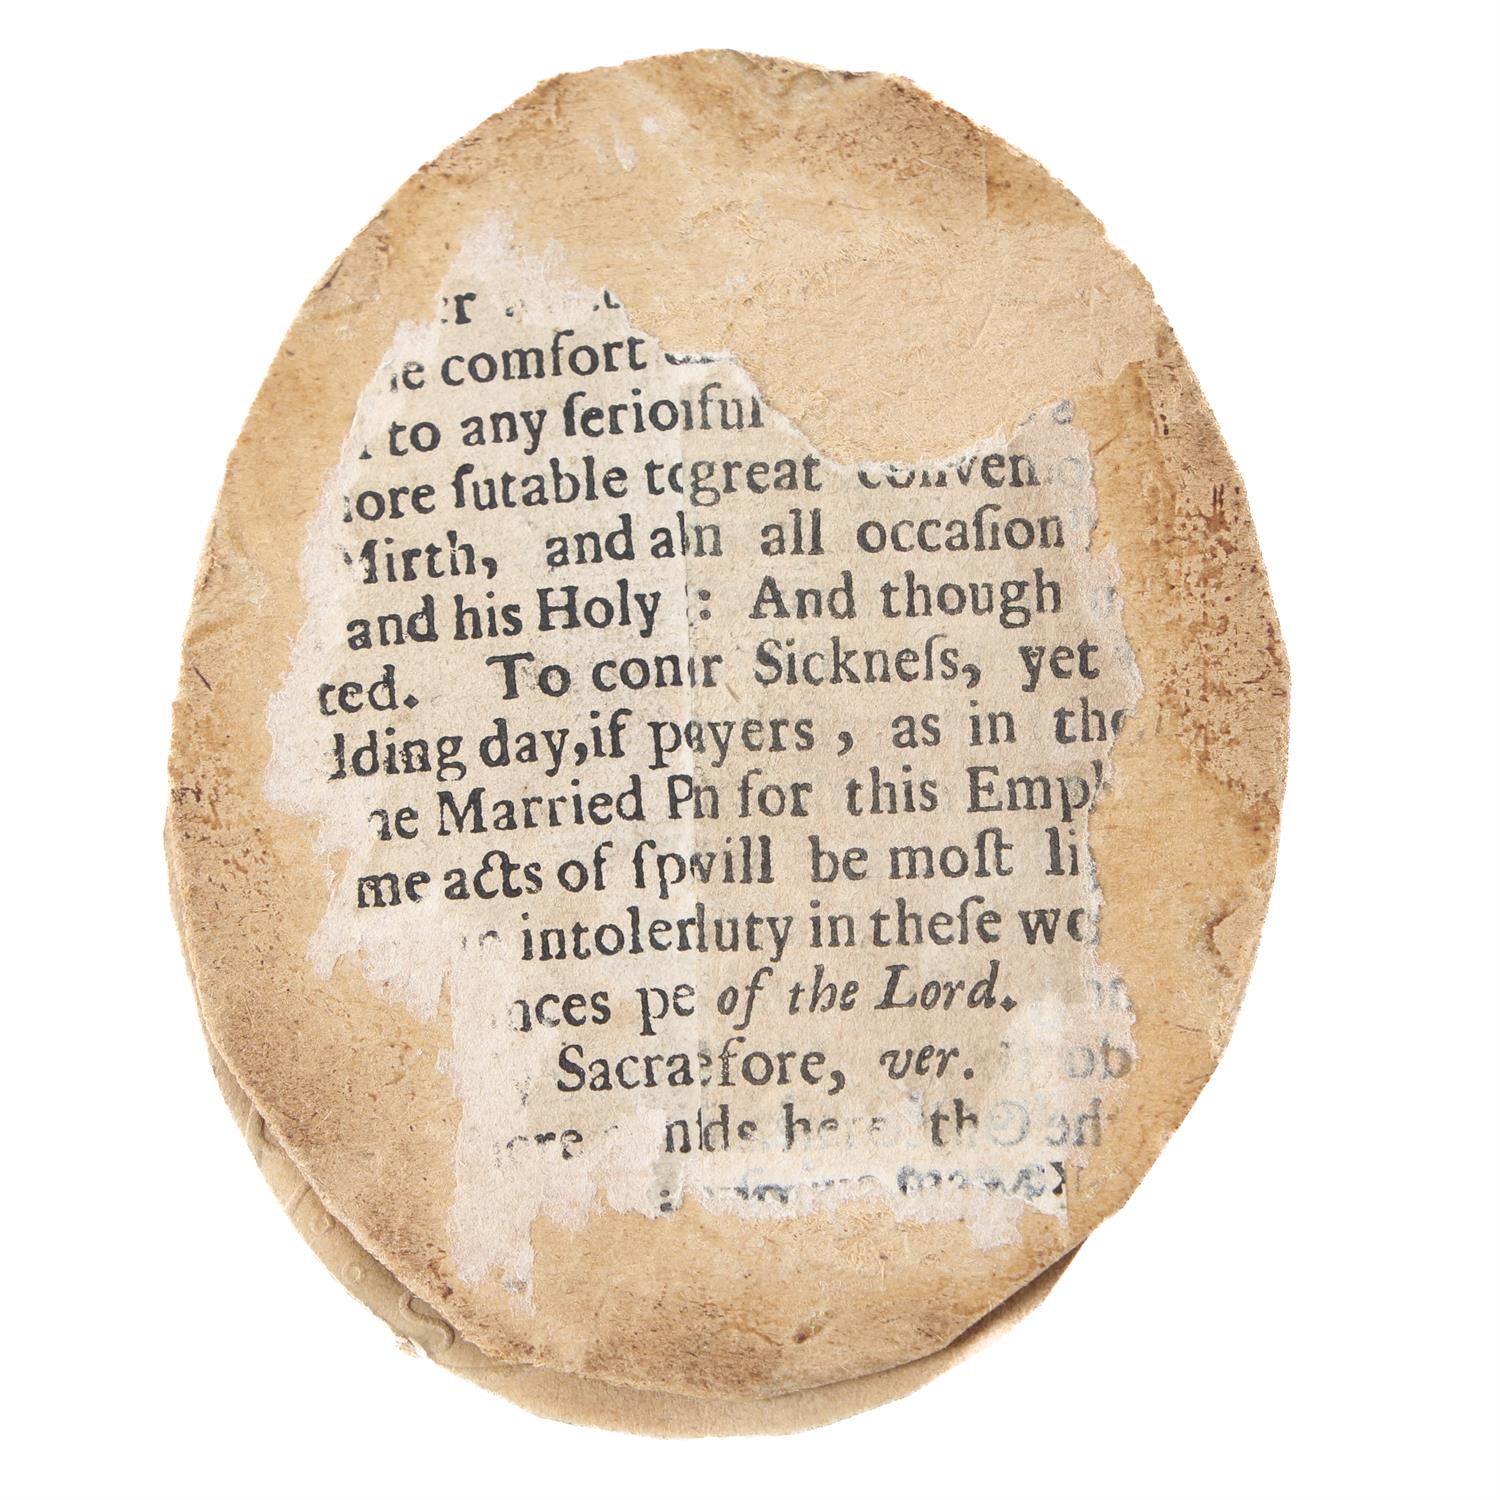 er
e comfort
to any ſerioıſul
ore ſutable tcgreat conven
Mirth, and aln all occaſion
and his Holy : And though
ted. To conr Sickneſs, yet
lding day, if payers, as in the
ne Married Pn for this Emp
me acts of ſpwill be moſt li
intolerluty in theſe wo
nces pe of the Lord.
Sacraefore, ver.
ere nds here th